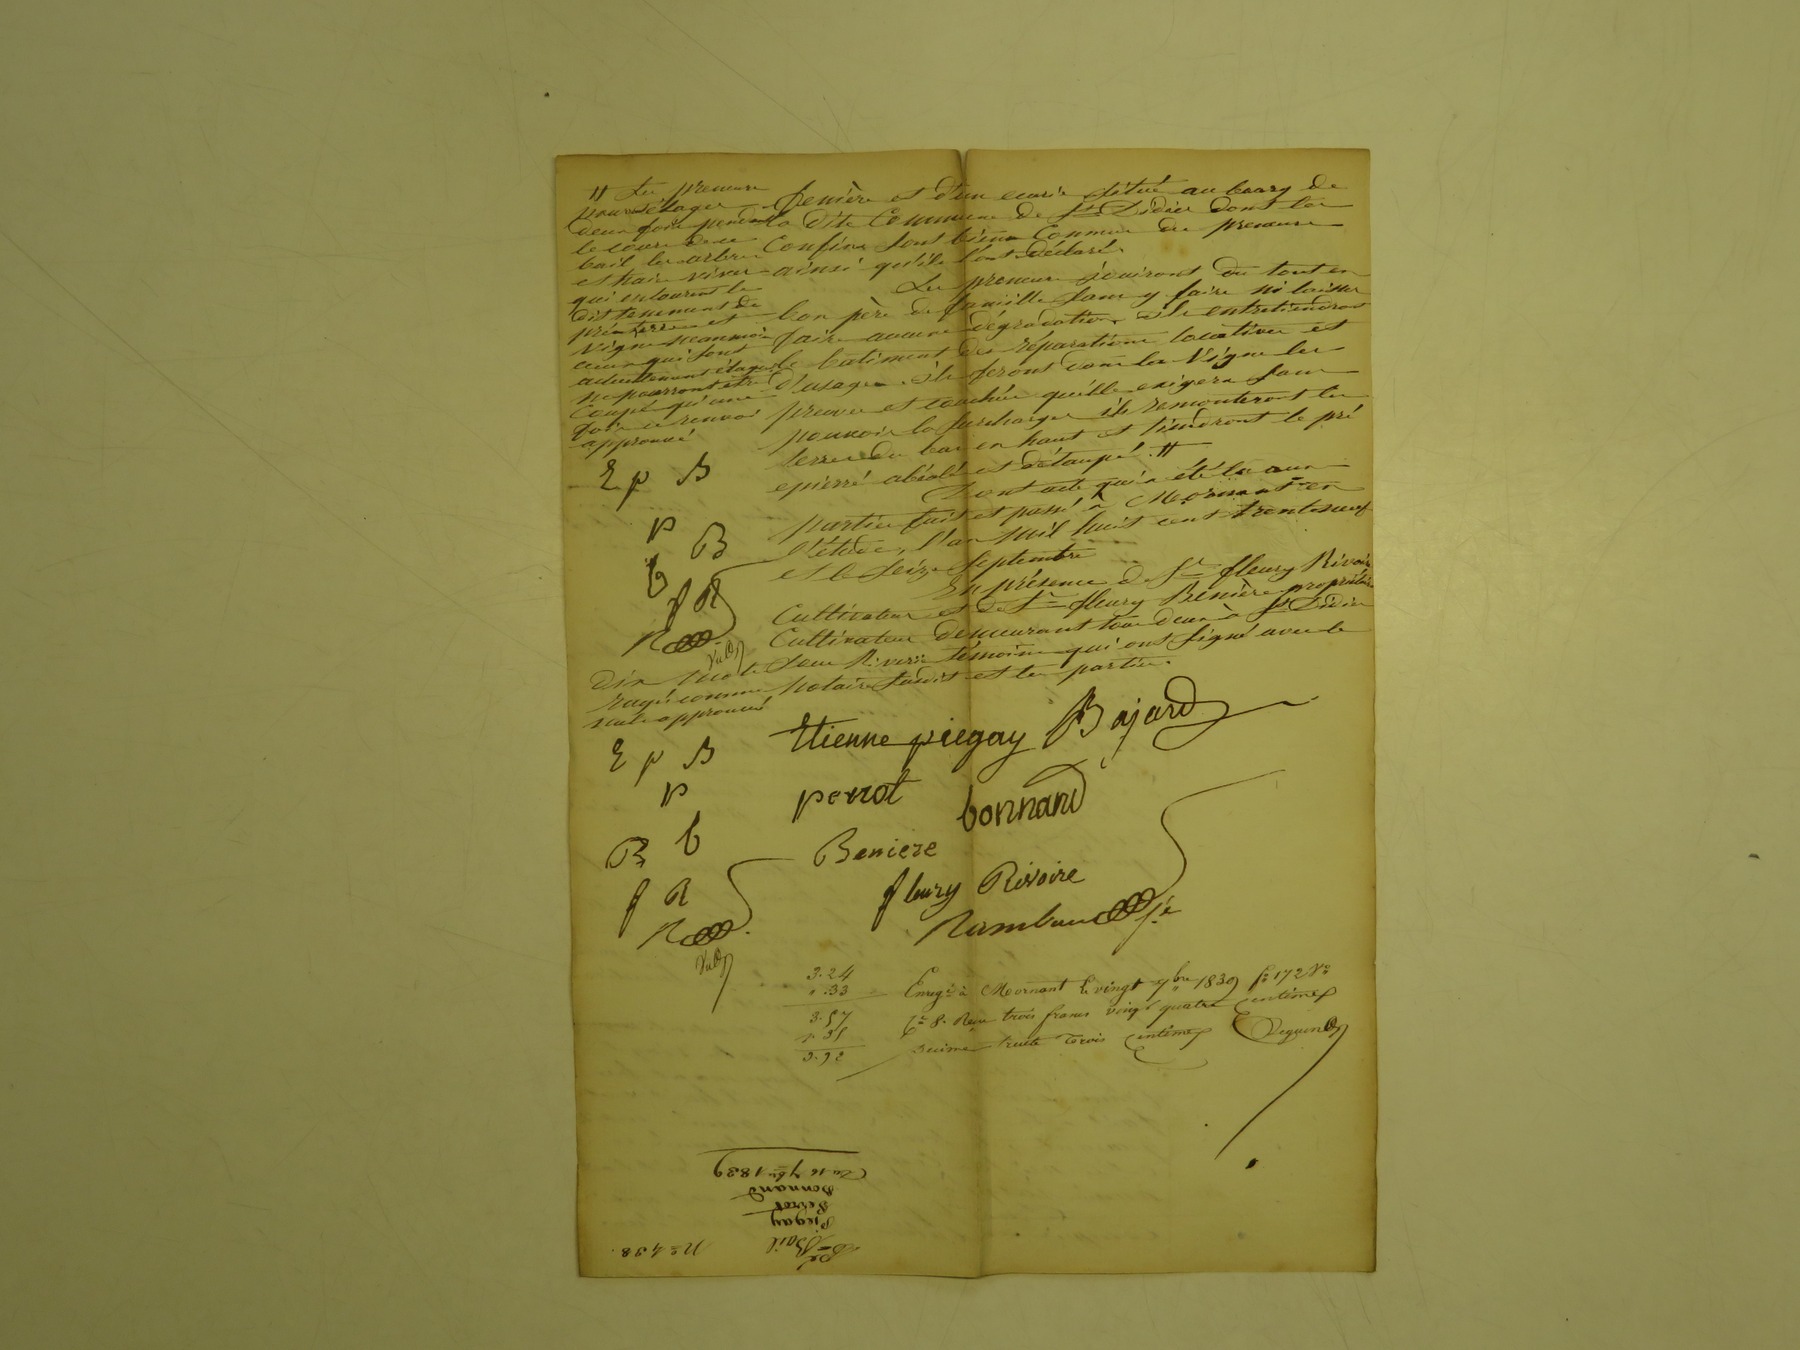 fenière et d'un ecurie situé au bourg de
la dite Commune de St Didier dont les
Confins sont bien Connus des preneurs
ainsi qu'ils l'ont déclaré
Les preneurs jouiront du tout en
bon père de famille sans y faire ni laisser
faire aucune dégradation ils entretiendront
le batiment des réparations locatives et
d'usages ils feront dans la Vigne les
preuves et couchées qu'elle exigera sans
pouvoir la surcharger ils remonteront les
terres du bas en haut et tiendront le pré
epierré et détaupé. #
Dont acte qui a été lu aux
parties fait et passé à Mornant en
l'étude, l'an Mil huit cent trente neuf
et le seize Septembre
En présence de Sr fleury Rivoire
Cultivateur et de Sr fleury Benière propriétaire
Cultivateur demeurant tous deux à St Didier
sous Riverie témoins qui ont signé avec le
Notaire susdit et les parties.
# Les preneurs
pourront élaguer
deux fois pendant
le cours de ce
bail les arbres
et haies vives
qui entourent le
dit tennement de
pré terre et
vigne neanmoins
ceux qui sont
actuellement élagués
ne pourront être
Coupés qu'une
fois ce renvoi
approuvé
E p B
p
B
b
f R
R
Dix mots
rayés comme
nuls approuvés
E p B
p
B b
f R
R
Etienne piegay Bajard
perrot bonnand
Beniere
fleury Rivoire
Rambaud
3.24
.33
3.57
.35
3.92
Enregé à Mornant le vingt 7bre 1839 fo 172 Vo
Ce 8. Reçu trois francs vingt quatre Centimes
decime trente trois Centimes
No 438.
Bail
Piegay
Perrot
Bonnand
Du 16 7bre 1839